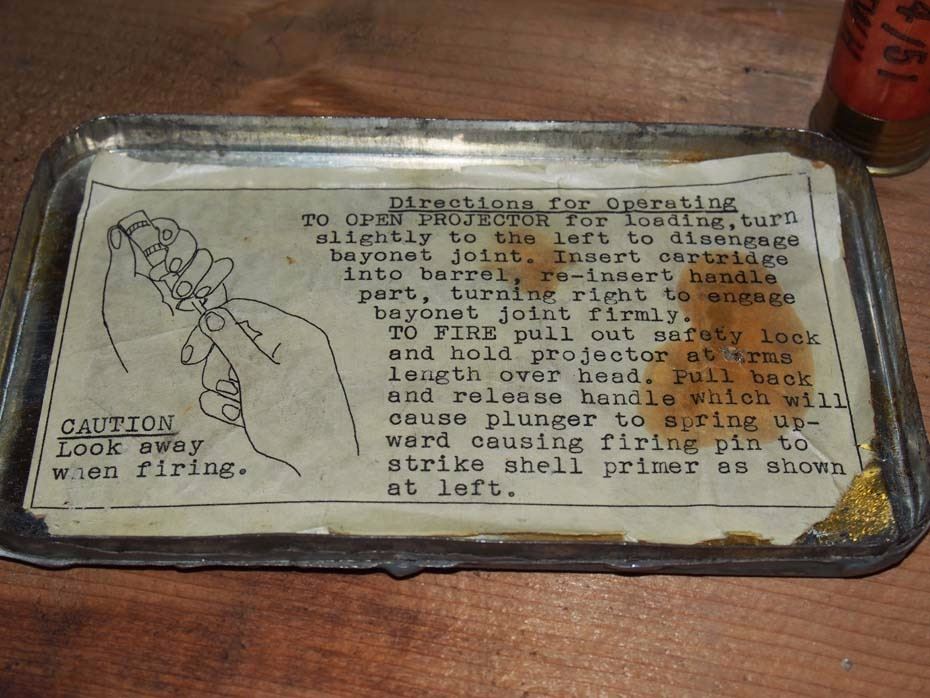 Directions for Operating
TO OPEN PROJECTOR for loading, turn
slightly to the left to disengage
bayonet joint. Insert cartridge
into barrel, re-insert handle
part, turning right to engage
bayonet joint firmly.
TO FIRE pull out safety lock
and hold projector at arms
length over head. Pull back
and release handle which will
cause plunger to spring up-
ward causing firing pin to
strike shell primer as shown
at left.
CAUTION
Look away
when firing.
4/51